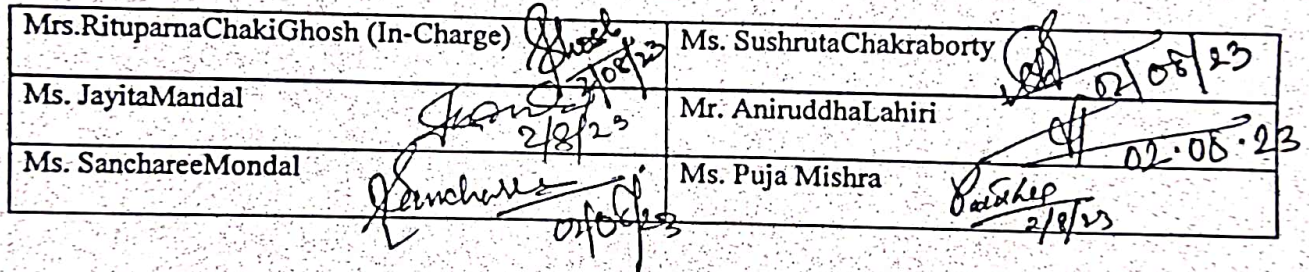 Mrs.RituparnaChakiGhosh (In-Charge) Ghosh 2/08/23 Ms. SushrutaChakraborty 02/08/23
Ms. JayitaMandal 2/8/23 Mr. AniruddhaLahiri 02.08.23
Ms. SanchareeMondal Sancharee 02/08/23 Ms. Puja Mishra 2/8/23